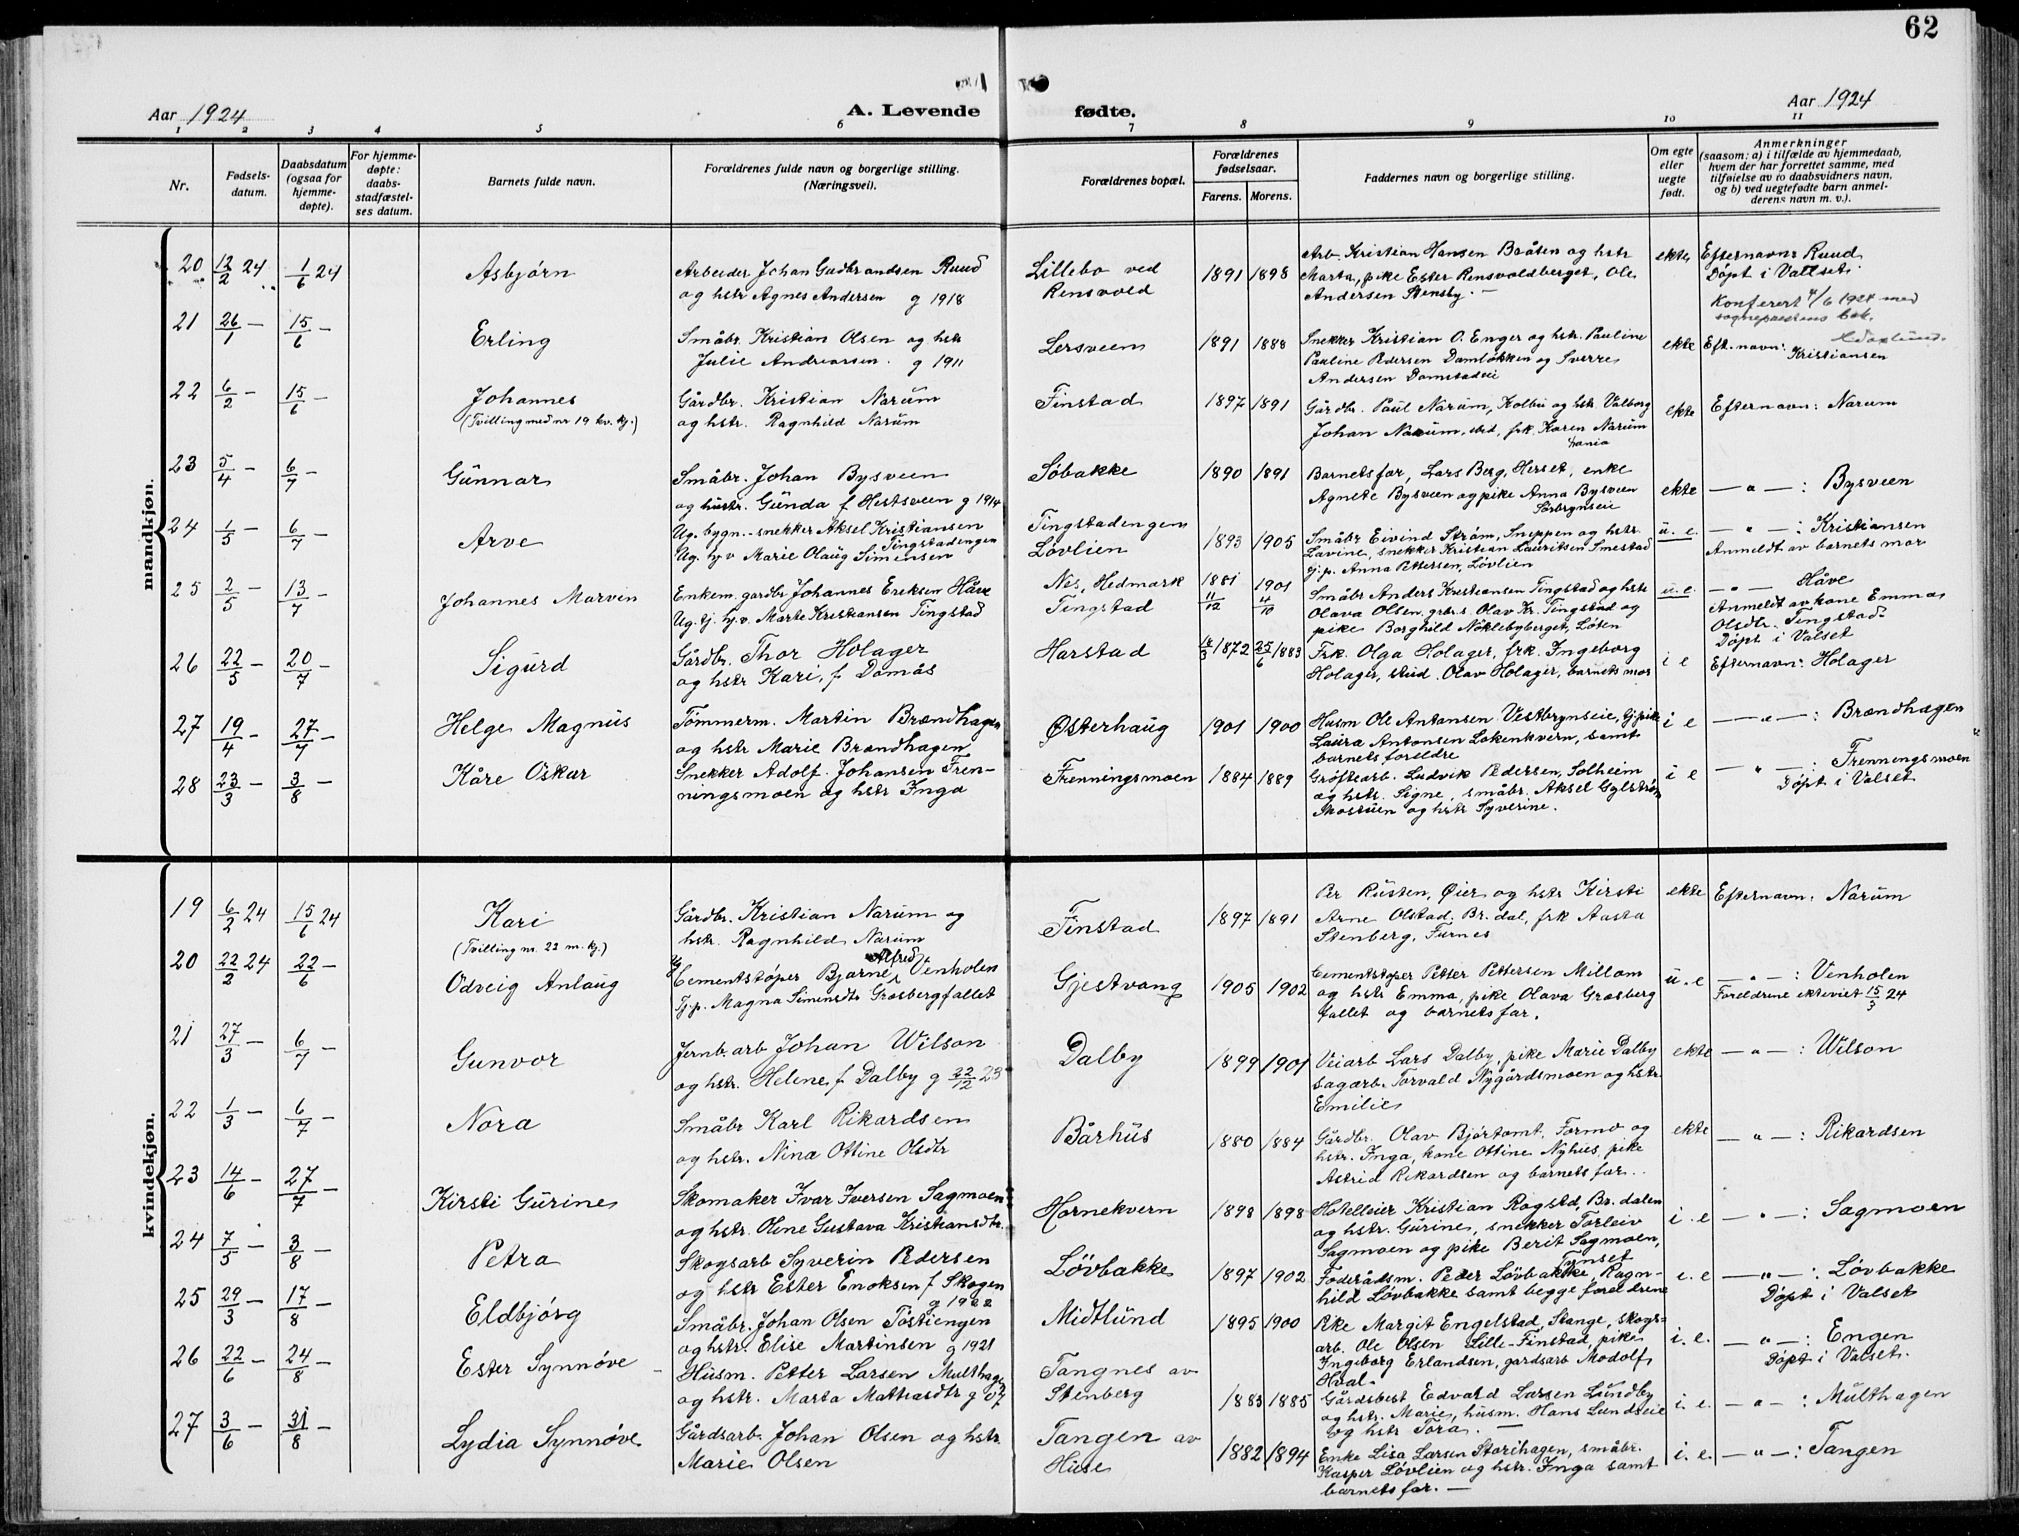 62
Aar 1924
A. Levende fødte.
Aar 1924
1 2 3 4 5 6 7 8 9 10 11
Nr.
Fødsels-
datum.
Daabsdatum
(ogsaa for
hjemme-
døpte).
For hjemme-
døpte:
daabs-
stadfæstel-
ses datum.
Barnets fulde navn.
Forældrenes fulde navn og borgerlige stilling.
(Næringsvei).
Forældrenes bopæl.
Forældrenes
fødselsaar.
Farens. Morens.
Faddernes navn og borgerlige stilling.
Om egte
eller
uegte
født.
Anmerkninger
(saasom: a) i tilfælde av hjemmedaab,
hvem der har forrettet samme, med
tilføielse av to daabsvidners navn,
og b) ved uegtefødte barn anmel-
derens navn m. v.).
mandkjøn.
20 12/2 24 1/6 24 Asbjørn
Arbeider Johan Gudbrandsen Ruud
og hstr Agnes Andersen g 1918
Lillebo ved
Rensvold
1891 1898
Arb. Kristian Hansen Bråten og hstr
Marta, pike Ester Rensvoldberget, Ole
Andersen Stensby. —
ekte
Efternavn: Ruud
Døpt i Vallset.
Konferert 4/6 1924 med
sogneprestens bok.
21 26/1 — 15/6 — Erling
Småbr. Kristian Olsen og hstr
Julie Andreassen. g 1911
Lersveen
1891 1888
Snekker Kristian O. Enger og hstr. Pauline
Pauline Pedersen Damløkken og Sverre
Andersen Damstadeie
ekte
Eft. navn: Kristiansen
22 6/2 — 15/6 — Johannes
(Tvilling med nr 19 kv. kj.)
Gårdbr. Kristian Narum
og hstr. Ragnhild Narum
Finstad
1897 1891
Gårdbr. Paul Narum, Kolbu og hstr. Valborg
Johan Narum, ibid, frk. Karen Narum
ekte
Efternavn: Narum
23 5/4 — 6/7 — Gunnar
Småbr. Johan Bysveen
og hustr. Gunda f Hestsveen g 1914
Søbakke
1890 1891
Barnets far, Lars Berg, Herset, enke
Agnete Bysveen og pike Anna Bysveen
Sørbrynseie
ekte
— " — : Bysveen
24 1/5 — 6/7 — Arve
Ug. bygn.-snekker Aksel Kristiansen
Tingstadengen
Ug. hj.v Marie Olaug Simensen
Tingstadengen
Løvlien
1893 1905
Småbr Eivind Strøm, Snippen og hstr.
Lavine, snekker Kristian Lauritsen Smestad
tj.p. Anna Pettersen, Løvlien
u. e.
— " — : Kristiansen
Anmeldt av barnets mor
25 2/5 — 13/7 — Johannes Marvin
Enkem. gardbr Johannes Eriksen Håve
Ug. tj. hj.v. Marte Kristiansen Tingstad
Nes, Hedmark
Tingstad
1881 11/12 1901 4/10
Småbr Anders Kristiansen Tingstad og hstr
Olava Olsen, grbr.s. Olav Kr. Tingstad og
pike Borghild Nøklebyberget, Løten
u. e.
— " — Håve
Anmeldt av kone Emma
Olsdtr. Tingstad.
Døpt i Valset
26 22/5 — 20/7 — Sigurd
Gårdbr. Thor Holager
og hstr Kari, f Domås
Harstad
1872 25/6 1883
Frk. Olga Holager, frk. Ingeborg
Holager, stud. Olav Holager, barnets mor
i e
Efternavn: Holager
27 19/4 — 27/7 — Helge Magnus
Tømmerm. Martin Brændhagen
og hstr Marie Brændhagen
Østerhaug
1901 1900
Husm Ole Antonsen Vestbrynseie, tj. pike
Laura Antonsen Løkenkvern, samt
barnets foreldre
i e
— " — : Brændhagen
28 23/3 — 3/8 — Kåre Oskar
Snekker Adolf Johansen Fren-
ningsmoen og hstr Inga
Frenningsmoen
1884 1889
Grøftearb. Ludvik Pedersen, Solheim
og hstr. Signe, småbr. Aksel Gylstrøm
Mostuen og hstr Syverine.
i e
— " — : Frenningsmoen
Døpt i Valset
kvindekjøn.
19 6/2 24 15/6 24 Kari
(Tvilling nr. 22 m. kj.)
Gårdbr. Kristian Narum og
hstr. Ragnhild Narum
Finstad
1897 1891
Per Rusten, Øier og hstr Kirsti
Arne Olstad, Br. dal, frk Aasta
Stenberg, Furnes
ekte
Efternavn: Narum
20 22/2 24 22/6 — Odveig Anlaug
Ug Cementstøper Bjarne Alfred Venholen
Tj.p. Magna Simensdtr Grasbergfallet
Gjestvang
1905 1902
Cementstøper Petter Pettersen Millom
og hstr Emma, pike Olava Grasberg
fallet og barnets far.
u. e
— " — : Venholen
Foreldrene ekteviet 15/3 24
21 27/3 — 6/7 — Gunvor
Jernb. arb Johan Wilson
og hstr. Helene f Dalby g 22/12 23
Dalby
1899 1901
Veiarb Lars Dalby, pike Marie Dalby
sagarb. Torvald Nygårdsmoen og hstr.
Emilie
ekte
— " — : Wilson
22 1/3 — 6/7 — Nora
Småbr Karl Rikardsen
og hstr. Nina Ottine Olsdtr
Bårhus
1880 1884
Gårdbr. Olav Bjørtomt, Formo og
hstr. Inga, kone Ottine Nyhus, pike
Astrid Rikardsen og barnets far.
ekte
— " — : Rikardsen
23 14/6 — 27/7 — Kirsti Gurine
Skomaker Ivar Iversen Sagmoen
og hstr. Oline Gustava Kristiansdtr.
Hornekvern
1898 1898
Hotelleier Kristian Rogstad, Br. dalen
og hstr. Gurine, snekker Torleiv
Sagmoen og pike Berit Sagmoen,
Tynset
i. e
— " — : Sagmoen
24 7/5 — 3/8 — Petra
Skogsarb Syverin Pedersen
og hstr Ester Enoksen f Skogen
g 1922
Løvbakke
1897 1902
Føderådsm. Peder Løvbakke, Ragn-
hild Løvbakke samt begge foreldrene
i. e
— " — : Løvbakke
Døpt i Valset
25 29/3 — 17/8 — Eldbjørg
Småbr. Johan Olsen Tøstiengen
og hstr. Elise Martinsen g 1921
Midtlund
1895 1900
Pike Margit Engelstad, Stange, skogs-
arb. Ole Olsen Lille-Finstad, pike
Ingeborg Erlandsen, gardsarb Modolf
Hval.
i. e.
— " — : Engen
Døpt i Valset.
26 22/6 — 24/8 — Ester Synnøve
Husm. Petter Larsen Multhagen
og hstr. Marta Mathiasdtr g 07
Tangnes av
Stenberg
1883 1885
Gårdsbest Edvard Larsen Lundby
og hstr. Marie, husm. Hans Lundseie
og hstr Tora. —
i. e.
— " — : Multhagen
27 3/6 — 31/8 — Lydia Synnøve
Gårdsarb. Johan Olsen og hstr.
Marie Olsen
Tangen av
Huse
1882 1894
Enke Lisa Larsen Storihagen, småbr.
Kasper Løvlien og hstr. Inga samt
barnets far. —
i. e.
— " — : Tangen